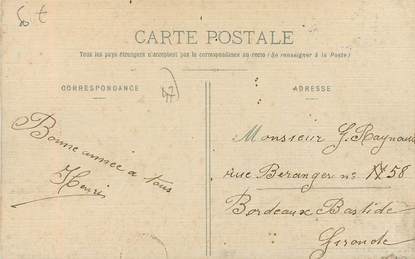 CARTE POSTALE
Tous les pays étrangers n'acceptent pas la correspondance au recto (Se renseigner à la Poste)
CORRESPONDANCE
47
Bonne année a tous
Henri
ADRESSE
Monsieur G. Raynaud
rue Beranger nº 58
Bordeaux Bastide
Gironde